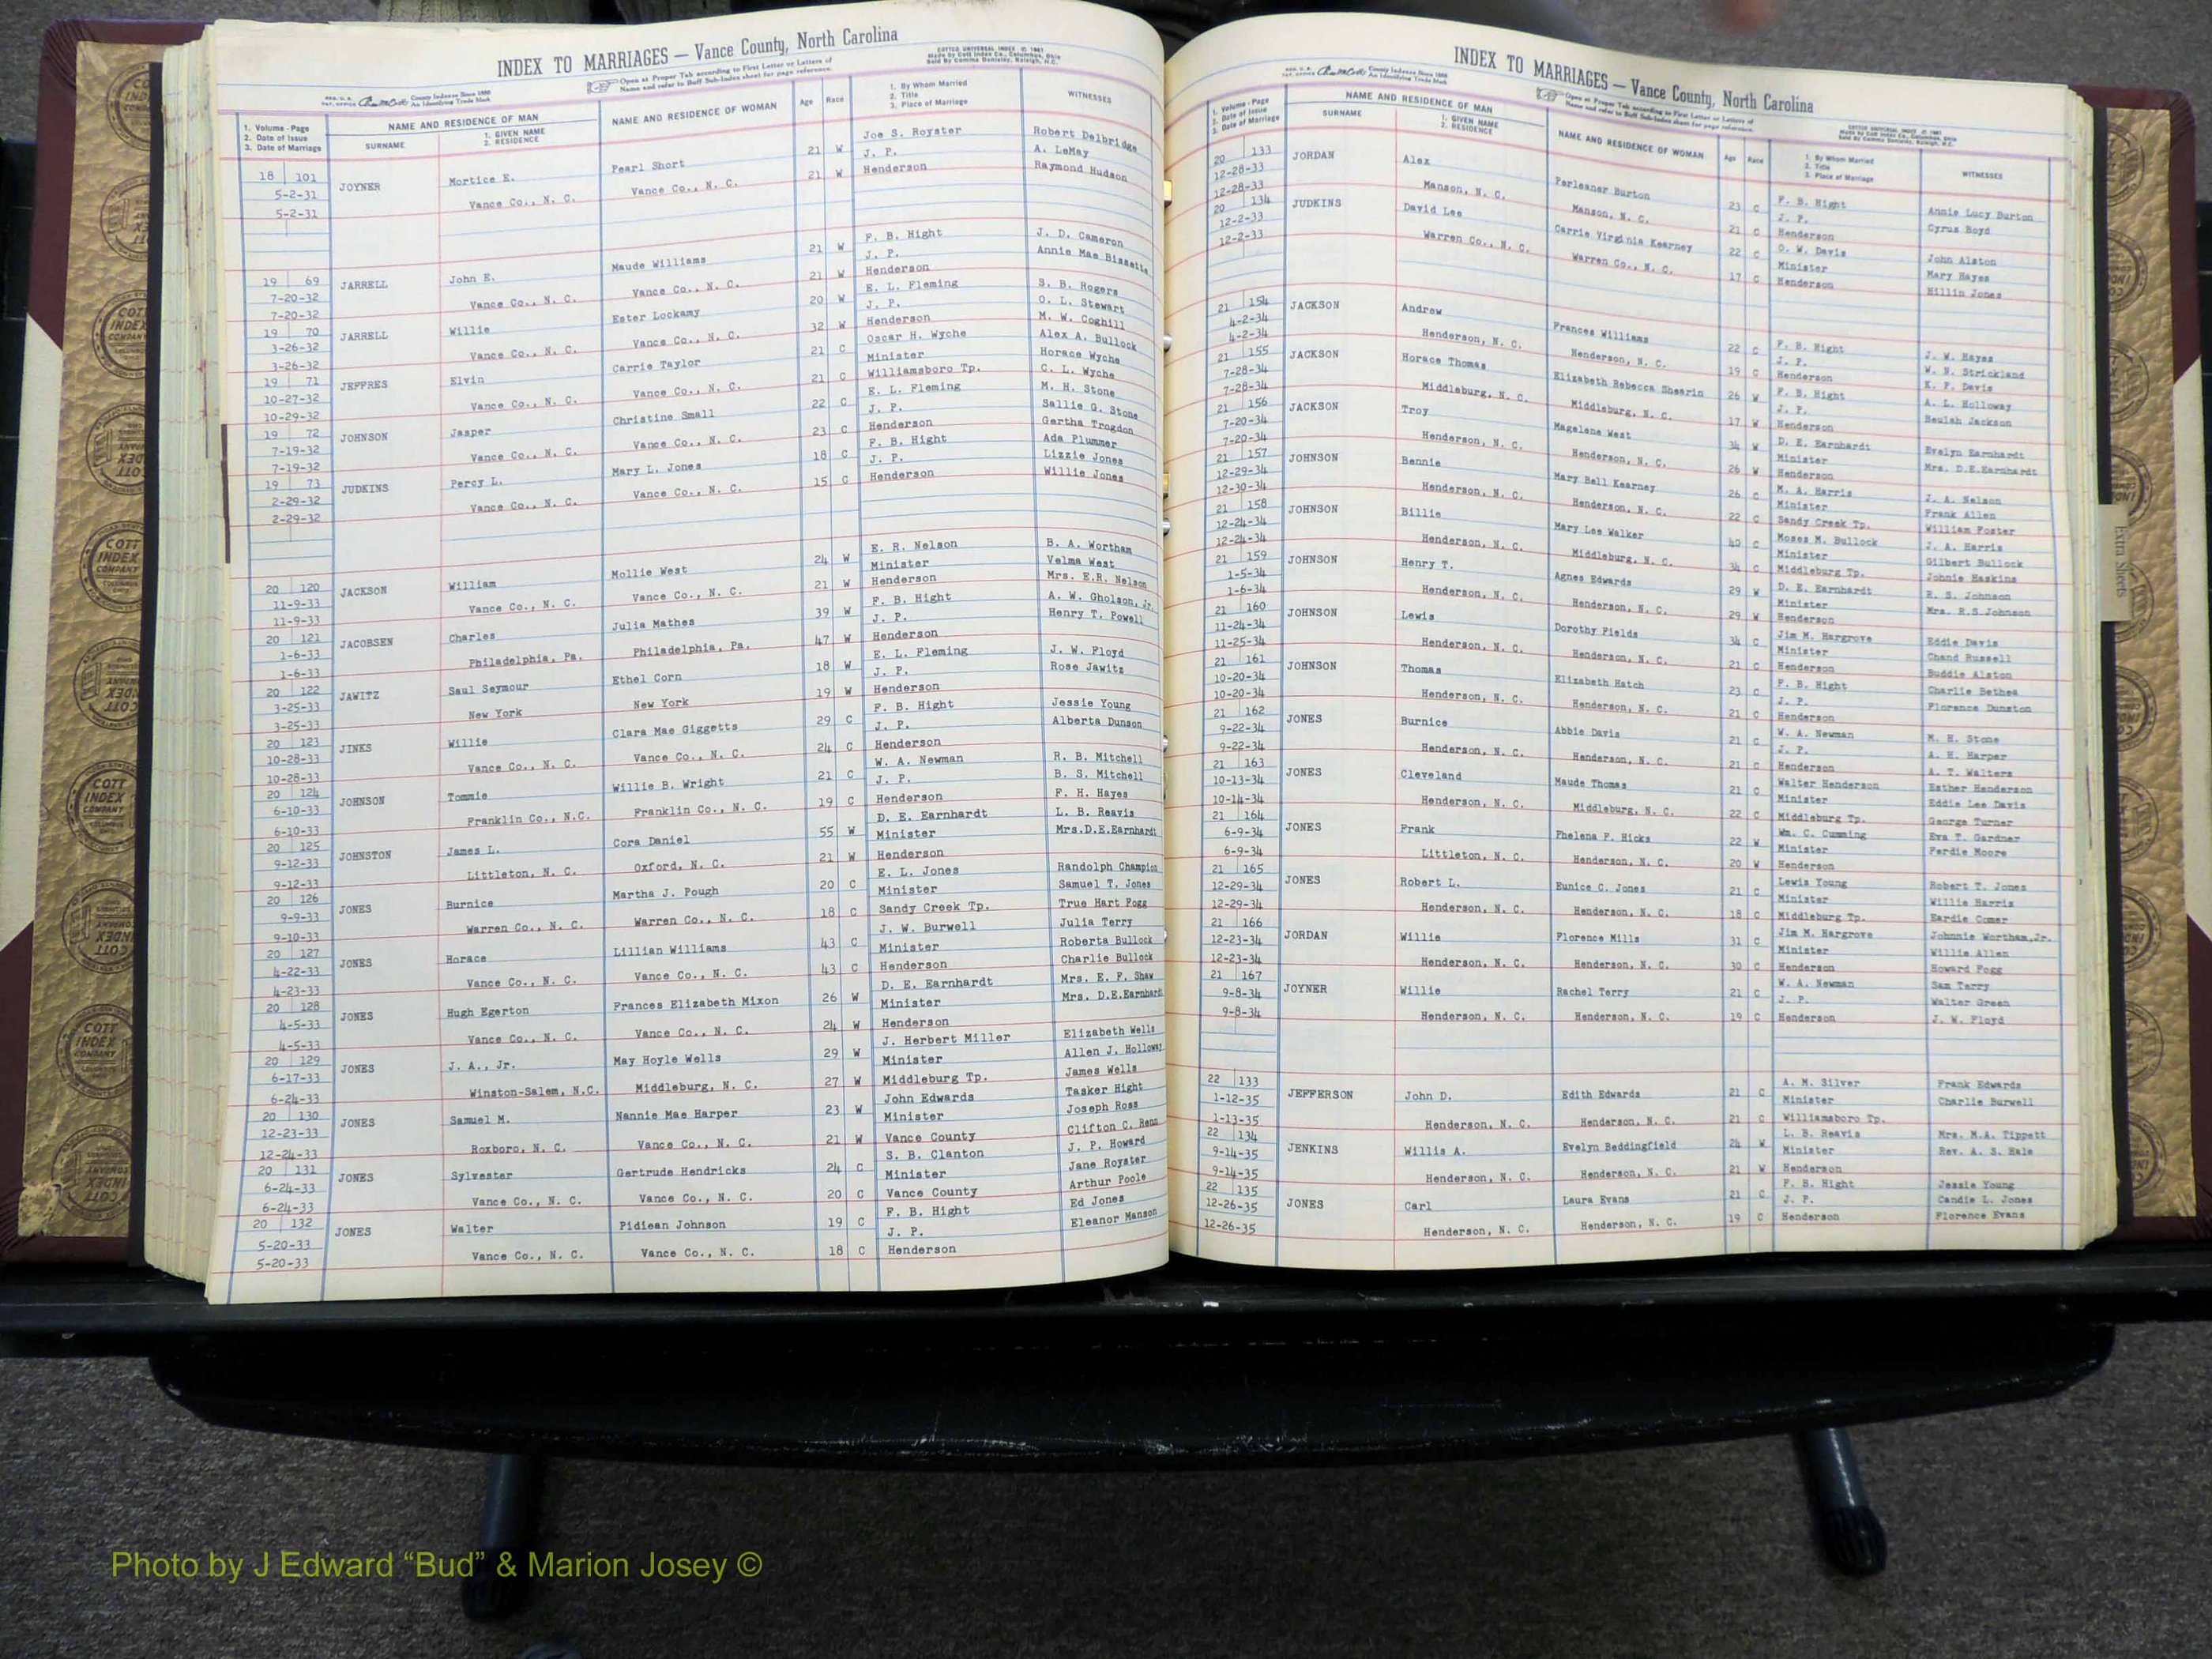 INDEX TO MARRIAGES — Vance County, North Carolina
COTTED UNIVERSAL INDEX © 1961
REG. U.S. PAT. OFFICE County Indexes Since 1888 An Identifying Trade Mark
Open at Proper Tab according to First Letter or Letters of Name and refer to Buff Sub-Index sheet for page reference.
1. Volume - Page 2. Date of Issue 3. Date of Marriage
NAME AND RESIDENCE OF MAN
SURNAME 1. GIVEN NAME 2. RESIDENCE
NAME AND RESIDENCE OF WOMAN Age Race 1. By Whom Married 2. Title 3. Place of Marriage WITNESSES
18 101 JOYNER Mortice E. Pearl Short 21 W Joe S. Royster Robert Delbridge
5-2-31 Vance Co., N. C. Vance Co., N. C. 21 W J. P. A. LeMay
5-2-31 Henderson Raymond Hudson
19 69 JARRELL John E. Maude Williams 21 W F. B. Hight J. D. Cameron
7-20-32 Vance Co., N. C. Vance Co., N. C. 21 W J. P. Annie Mae Bissette
7-20-32 Henderson
19 70 JARRELL Willie Ester Lockamy 20 W E. L. Fleming S. B. Rogers
3-26-32 Vance Co., N. C. Vance Co., N. C. 32 W J. P. O. L. Stewart
3-26-32 Henderson M. W. Coghill
19 71 JEFFRES Elvin Carrie Taylor 21 C Oscar H. Wyche Alex A. Bullock
10-27-32 Vance Co., N. C. Vance Co., N. C. 21 C Minister Horace Wyche
10-29-32 Williamsboro Tp. C. L. Wyche
19 72 JOHNSON Jasper Christine Small 22 C E. L. Fleming M. H. Stone
7-19-32 Vance Co., N. C. Vance Co., N. C. 23 C J. P. Sallie G. Stone
7-19-32 Henderson Gertha Trogdon
19 73 JUDKINS Percy L. Mary L. Jones 18 C F. B. Hight Ada Plummer
2-29-32 Vance Co., N. C. Vance Co., N. C. 15 C J. P. Lizzie Jones
2-29-32 Henderson Willie Jones
20 120 JACKSON William Mollie West 24 W E. R. Nelson B. A. Wortham
11-9-33 Vance Co., N. C. Vance Co., N. C. 21 W Minister Velma West
11-9-33 Henderson Mrs. E.R. Nelson
20 121 JACOBSEN Charles Julia Mathes 39 W F. B. Hight A. W. Gholson, Jr.
1-6-33 Philadelphia, Pa. Philadelphia, Pa. 47 W J. P. Henry T. Powell
1-6-33 Henderson
20 122 JAWITZ Saul Seymour Ethel Corn 18 W E. L. Fleming J. W. Floyd
3-25-33 New York New York 19 W J. P. Rose Jawitz
3-25-33 Henderson
20 123 JINKS Willie Clara Mae Giggetts 29 C F. B. Hight Jessie Young
10-28-33 Vance Co., N. C. Vance Co., N. C. 24 C J. P. Alberta Dunson
10-28-33 Henderson
20 124 JOHNSON Tommie Willie B. Wright 21 C W. A. Newman R. B. Mitchell
6-10-33 Franklin Co., N.C. Franklin Co., N. C. 19 C J. P. B. S. Mitchell
6-10-33 Henderson F. H. Hayes
20 125 JOHNSTON James L. Cora Daniel 55 W D. E. Earnhardt L. B. Reavis
9-12-33 Littleton, N. C. Oxford, N. C. 21 W Minister Mrs.D.E.Earnhardt
9-12-33 Henderson
20 126 JONES Burnice Martha J. Pough 20 C E. L. Jones Randolph Champion
9-9-33 Warren Co., N. C. Warren Co., N. C. 18 C Minister Samuel T. Jones
9-10-33 Sandy Creek Tp. True Hart Fogg
20 127 JONES Horace Lillian Williams 43 C J. W. Burwell Julia Terry
4-22-33 Vance Co., N. C. Vance Co., N. C. 43 C Minister Roberta Bullock
4-23-33 Henderson Charlie Bullock
20 128 JONES Hugh Egerton Frances Elizabeth Mixon 26 W D. E. Earnhardt Mrs. E. F. Shaw
4-5-33 Vance Co., N. C. Vance Co., N. C. 24 W Minister Mrs. D.E.Earnhardt
4-5-33 Henderson
20 129 JONES J. A., Jr. May Hoyle Wells 29 W J. Herbert Miller Elizabeth Wells
6-17-33 Winston-Salem, N.C. Middleburg, N. C. 27 W Minister Allen J. Holloway
6-24-33 Middleburg Tp. James Wells
20 130 JONES Samuel M. Nannie Mae Harper 23 W John Edwards Tasker Hight
12-23-33 Roxboro, N. C. Vance Co., N. C. 21 W Minister Joseph Ross
12-24-33 Vance County Clifton C. Renn
20 131 JONES Sylvester Gertrude Hendricks 24 C S. B. Clanton J. P. Howard
6-24-33 Vance Co., N. C. Vance Co., N. C. 20 C Minister Jane Royster
6-24-33 Vance County Arthur Poole
20 132 JONES Walter Pidiean Johnson 19 C F. B. Hight Ed Jones
5-20-33 Vance Co., N. C. Vance Co., N. C. 18 C J. P. Eleanor Manson
5-20-33 Henderson
INDEX TO MARRIAGES — Vance County, North Carolina
REG. U.S. PAT. OFFICE County Indexes Since 1888 An Identifying Trade Mark
Open at Proper Tab according to First Letter or Letters of Name and refer to Buff Sub-Index sheet for page reference.
1. Volume - Page 2. Date of Issue 3. Date of Marriage
NAME AND RESIDENCE OF MAN
SURNAME 1. GIVEN NAME 2. RESIDENCE
NAME AND RESIDENCE OF WOMAN Age Race 1. By Whom Married 2. Title 3. Place of Marriage WITNESSES
20 133 JORDAN Alex Perleaner Burton 23 C F. B. Hight Annie Lucy Burton
12-28-33 Manson, N. C. Manson, N. C. 21 C J. P. Cyrus Boyd
12-28-33 Henderson
20 134 JUDKINS David Lee Carrie Virginia Kearney 22 C O. W. Davis John Alston
12-2-33 Warren Co., N. C. Warren Co., N. C. 17 C Minister Mary Hayes
12-2-33 Henderson Hillin Jones
21 154 JACKSON Andrew Frances Williams 22 C F. B. Hight J. W. Hayes
4-2-34 Henderson, N. C. Henderson, N. C. 19 C J. P. W. N. Strickland
4-2-34 Henderson K. P. Davis
21 155 JACKSON Horace Thomas Elizabeth Rebecca Shearin 26 W F. B. Hight A. L. Holloway
7-28-34 Middleburg, N. C. Middleburg, N. C. 17 W J. P. Beulah Jackson
7-28-34 Henderson
21 156 JACKSON Troy Magelene West 34 W D. E. Earnhardt Evelyn Earnhardt
7-20-34 Henderson, N. C. Henderson, N. C. 26 W Minister Mrs. D.E.Earnhardt
7-20-34 Henderson
21 157 JOHNSON Bennie Mary Bell Kearney 26 C M. A. Harris J. A. Nelson
12-29-34 Henderson, N. C. Henderson, N. C. 22 C Minister Frank Allen
12-30-34 Sandy Creek Tp. William Foster
21 158 JOHNSON Billie Mary Lee Walker 40 C Moses M. Bullock J. A. Harris
12-24-34 Henderson, N. C. Middleburg, N. C. 34 C Minister Gilbert Bullock
12-24-34 Middleburg Tp. Johnie Haskins
21 159 JOHNSON Henry T. Agnes Edwards 29 W D. E. Earnhardt R. S. Johnson
1-5-34 Henderson, N. C. Henderson, N. C. 29 W Minister Mrs. R.S.Johnson
1-6-34 Henderson
21 160 JOHNSON Lewis Dorothy Fields 34 C Jim M. Hargrove Eddie Davis
11-24-34 Henderson, N. C. Henderson, N. C. 21 C Minister Chand Russell
11-25-34 Henderson Buddie Alston
21 161 JOHNSON Thomas Elizabeth Hatch 23 C F. B. Hight Charlie Bethea
10-20-34 Henderson, N. C. Henderson, N. C. 21 C J. P. Florence Dunston
10-20-34 Henderson
21 162 JONES Burnice Abbie Davis 21 C W. A. Newman M. H. Stone
9-22-34 Henderson, N. C. Henderson, N. C. 21 C J. P. A. H. Harper
9-22-34 Henderson A. T. Walters
21 163 JONES Cleveland Maude Thomas 21 C Walter Henderson Esther Henderson
10-13-34 Henderson, N. C. Middleburg, N. C. 22 C Minister Eddie Lee Davis
10-14-34 Middleburg Tp. George Turner
21 164 JONES Frank Phelena P. Hicks 22 W Wm. C. Cumming Eva T. Gardner
6-9-34 Littleton, N. C. Henderson, N. C. 20 W Minister Ferdie Moore
6-9-34 Henderson
21 165 JONES Robert L. Eunice C. Jones 21 C Lewis Young Robert T. Jones
12-29-34 Henderson, N. C. Henderson, N. C. 18 C Minister Willie Harris
12-29-34 Middleburg Tp. Eardie Comer
21 166 JORDAN Willie Florence Mills 31 C Jim M. Hargrove Johnnie Wortham,Jr.
12-23-34 Henderson, N. C. Henderson, N. C. 30 C Minister Willie Allen
12-23-34 Henderson Howard Fogg
21 167 JOYNER Willie Rachel Terry 21 C W. A. Newman Sam Terry
9-8-34 Henderson, N. C. Henderson, N. C. 19 C J. P. Walter Green
9-8-34 Henderson J. W. Floyd
22 133 JEFFERSON John D. Edith Edwards 21 C A. M. Silver Frank Edwards
1-12-35 Henderson, N. C. Henderson, N. C. 21 C Minister Charlie Burwell
1-13-35 Williamsboro Tp.
22 134 JENKINS Willis A. Evelyn Beddingfield 24 W L. B. Reavis Mrs. M.A. Tippett
9-14-35 Henderson, N. C. Henderson, N. C. 21 W Minister Rev. A. S. Hale
9-14-35 Henderson
22 135 JONES Carl Laura Evans 21 C F. B. Hight Jessie Young
12-26-35 Henderson, N. C. Henderson, N. C. 19 C J. P. Candie L. Jones
12-26-35 Henderson Florence Evans
Extra Sheets
COTT INDEX COMPANY
Photo by J Edward “Bud” & Marion Josey ©